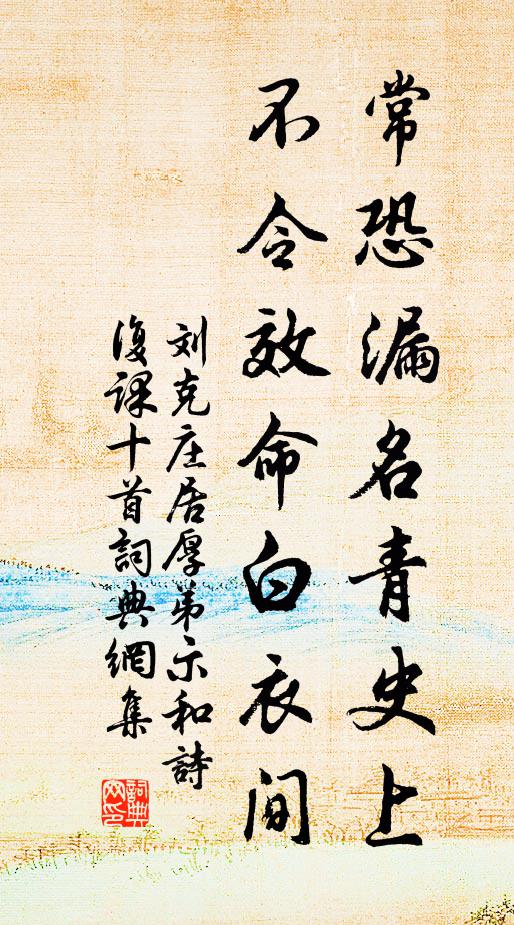 常恐漏名青史上
不令效命白衣间
刘克庄居厚弟示和詩
復課十首詞典網集
詞典
网印